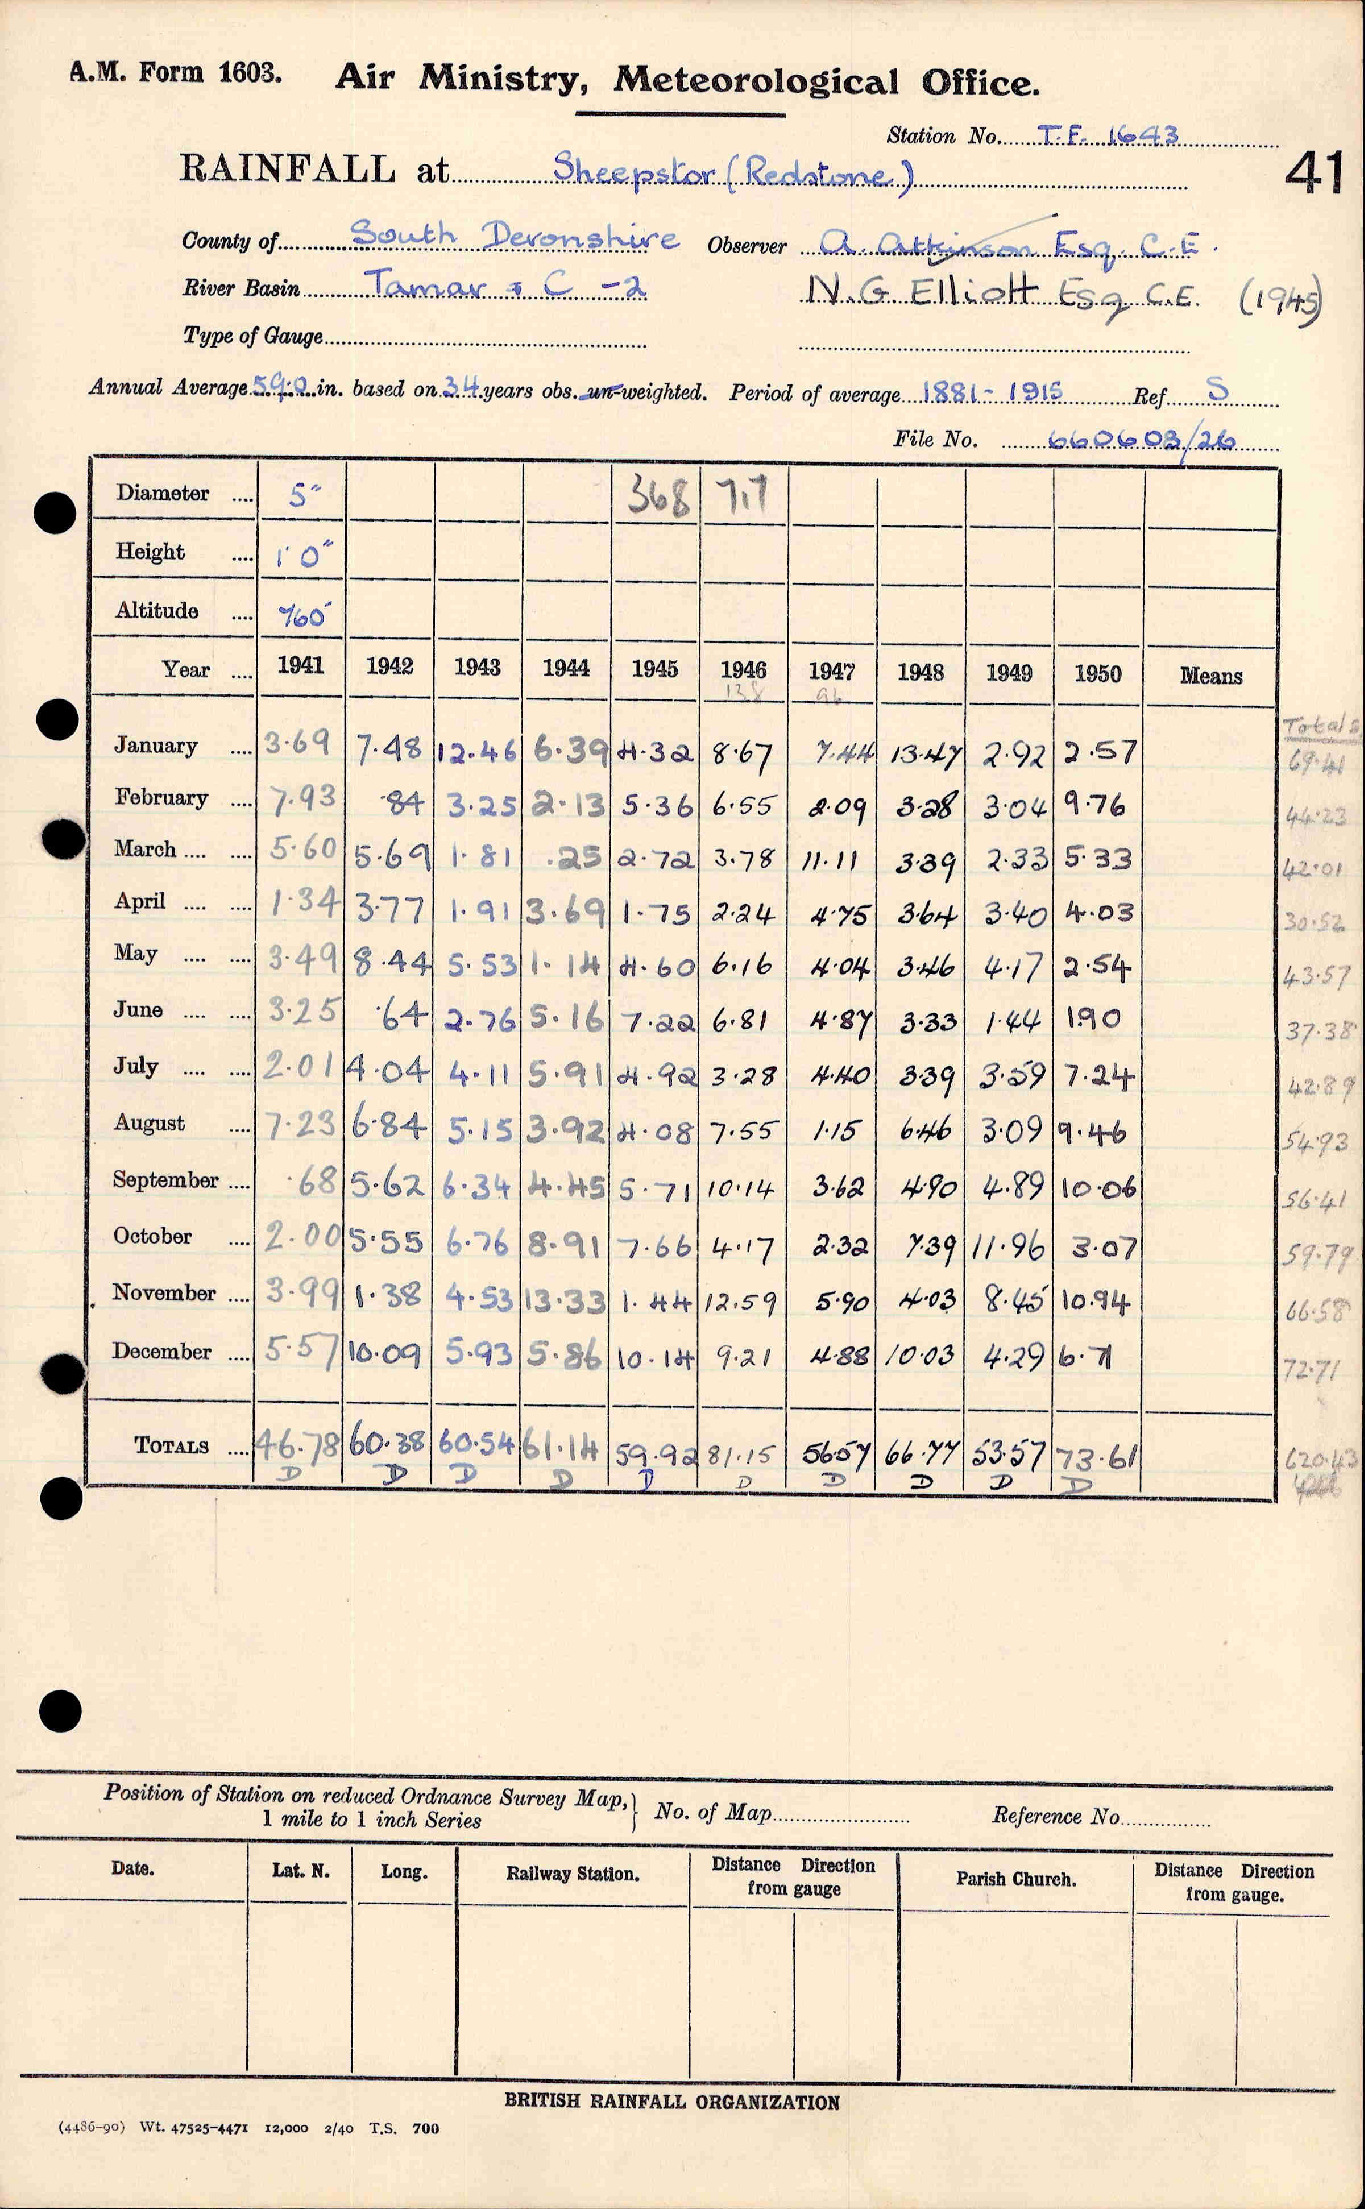 A.M. Form 1603. Air Ministry, Meteorological Office.
Station No. T.F. 1643
RAINFALL at Sheepstor (Redstone)
41
County of South Devonshire Observer A. Atkinson Esq. C.E.
River Basin Tamar & C -2 N.G Elliott Esq C.E. (1945)
Type of Gauge
Annual Average 59.0 in. based on 34 years obs. un-weighted. Period of average 1881 - 1915 Ref S
File No. 660603/26
Diameter .... 5" 368 7.7
Height .... 1' 0"
Altitude .... 760'
Year .... 1941 1942 1943 1944 1945 1946 1947 1948 1949 1950 Means
138 96
Totals
January .... 3.69 7.48 12.46 6.39 4.32 8.67 7.44 13.47 2.92 2.57 69.41
February .... 7.93 .84 3.25 2.13 5.36 6.55 2.09 3.28 3.04 9.76 44.23
March .... .... 5.60 5.69 1.81 .25 2.72 3.78 11.11 3.39 2.33 5.33 42.01
April .... .... 1.34 3.77 1.91 3.69 1.75 2.24 4.75 3.64 3.40 4.03 30.52
May .... .... 3.49 8.44 5.53 1.14 4.60 6.16 4.04 3.46 4.17 2.54 43.57
June .... .... 3.25 .64 2.76 5.16 7.22 6.81 4.87 3.33 1.44 1.90 37.38
July .... .... 2.01 4.04 4.11 5.91 4.92 3.28 4.40 3.39 3.59 7.24 42.89
August .... 7.23 6.84 5.15 3.92 4.08 7.55 1.15 6.46 3.09 9.46 54.93
September .... .68 5.62 6.34 4.45 5.71 10.14 3.62 4.90 4.89 10.06 56.41
October .... 2.00 5.55 6.76 8.91 7.66 4.17 2.32 7.39 11.96 3.07 59.79
November .... 3.99 1.38 4.53 13.33 1.44 12.59 5.90 4.03 8.45 10.94 66.58
December .... 5.57 10.09 5.93 5.86 10.14 9.21 4.88 10.03 4.29 6.71 72.71
TOTALS .... 46.78 60.38 60.54 61.14 59.92 81.15 56.57 66.77 53.57 73.61 620.43
D D D D D D D D D D
Position of Station on reduced Ordnance Survey Map, } No. of Map Reference No.
1 mile to 1 inch Series
Date. Lat. N. Long. Railway Station. Distance Direction from gauge Parish Church. Distance Direction from gauge.
BRITISH RAINFALL ORGANIZATION
(4486-90) Wt. 47525-4471 12,000 2/40 T.S. 700